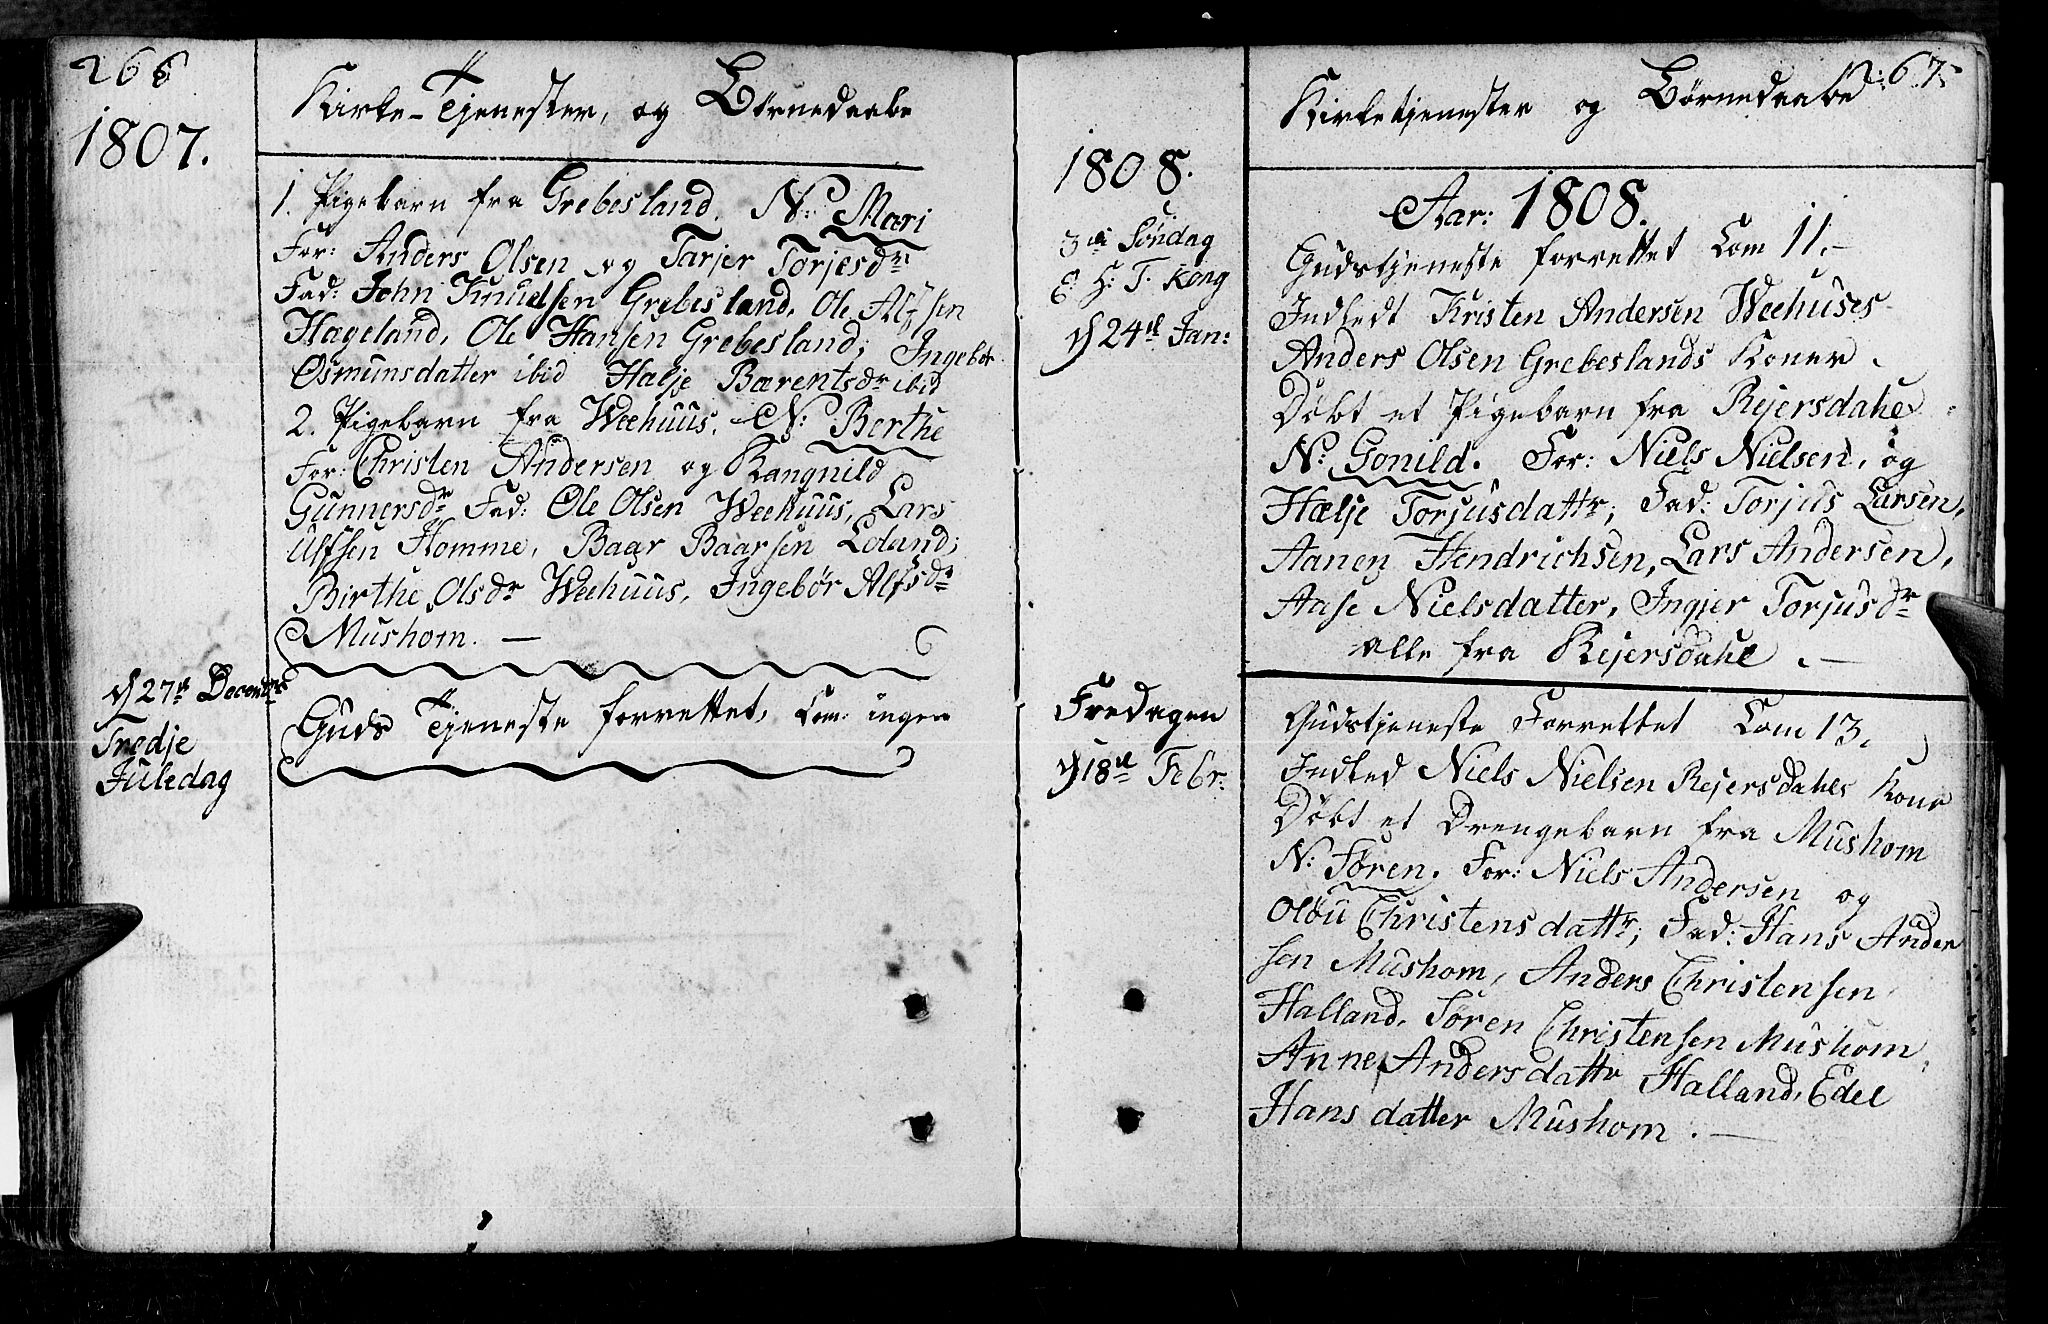 266
Kirke-Tjenester, og Børnedaabe
1807.
1. Pigebarn fra Grebesland. N: Mari
For: Anders Olsen og Tarjer Torjesdr
Fad: John Knudsen Grebesland, Ole Alfsen
Hageland, Ole Hansen Grebesland; Ingebor
Osmunsdatter ibid Halje Bærentsdr ibid
2. Pigebarn fra Weehuus. N: Berthe
For: Christen Andersen og Rangnild
Gunnersdr Fad: Ole Olsen Weehuus, Lars
Ulfsen Homme, Baar Baarsen Loland;
Birthe Olsdr Weehuus, Ingebør Alfsdr
Mushom. —
d 27de Decembr
Tredje
Juledag
Guds Tjeneste forrettet, Com: ingen
267
Kirketjenester og Børnedaabe
1808.
Aar: 1808.
3die Søndag
E. H. T. Kong
d 24de Jan:
Gudstjeneste forrettet Com 11.-
Indledt Kristen Andersen Weehuses
Anders Olsen Grebeslands Koner.
Døbt et Pigebarn fra Rejersdahl
N: Gonild. For: Niels Nielsen, og
Hælje Torjusdattr; Fad: Torjus Larsen,
Aanen Hendrichsen, Lars Andersen,
Aase Nielsdatter, Ingjer Torjusdr
alle fra Rejersdahl. —
Fredagen
d 18de Febr:
Gudstjeneste Forrettet Com 13.
Indled Niels Nielsen Rejersdahls Kone
Døbt et Drengebarn fra Mushom
N: Søren. For: Niels Andersen og
Oløu Christensdattr; Fad: Hans Ander
sen Mushom, Anders Christensen
Halland, Søren Christensen Mushom,
Anne Andersdattr Halland, Edel
Hansdatter Mushom. —